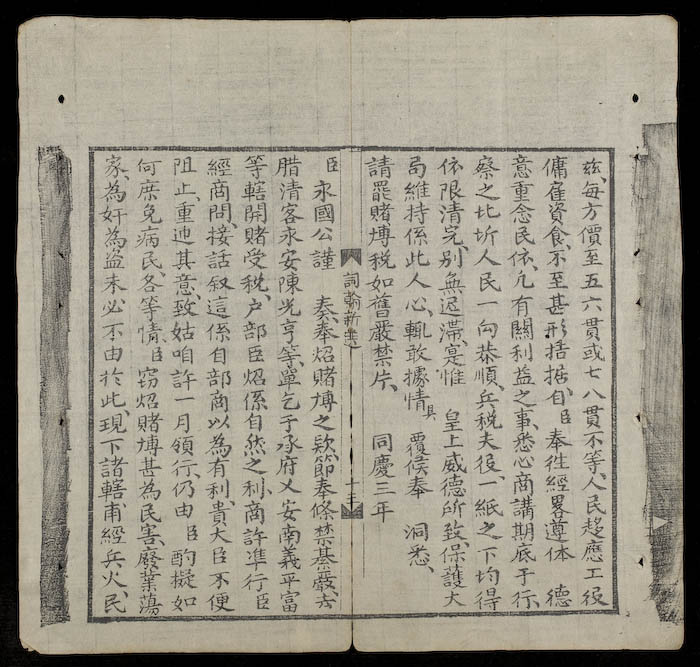 玆、每方價至五六貫或七八貫不等、人民趍應工役
傭雇資食、不至甚形拮据、自臣奉徃經畧、遵体 德
意、重念民依、凢有關利益之事、悉心商講、期底于行、
察之比圻人民一向恭順、兵税夫役、一紙之下、均得
依限清完、别無迟滯、寔惟 皇上威德所致、保護大
局維持係此人心、輒敢據情具 覆候奉 洞悉、
請罷賭博税如舊嚴禁片、 同慶三年
詞翰新
臣永國公謹 奏、奉炤賭博之欵、節奉條禁甚嚴、去
腊清客永安陳光亨等、單乞于承府乂安南義平富
等轄開賭受税、户部臣炤係自然之利、商許準行、臣
經商問、接話叙、這係自部商以為有利、貴大臣不便
阻止、重迆其意、致姑咱許一月領行、仍由臣酌擬如
何庶免病民各等情、臣窃炤賭博甚為民害、廢業蕩
家、為奸為盗、未必不由於此、現下諸轄甫經兵火、民